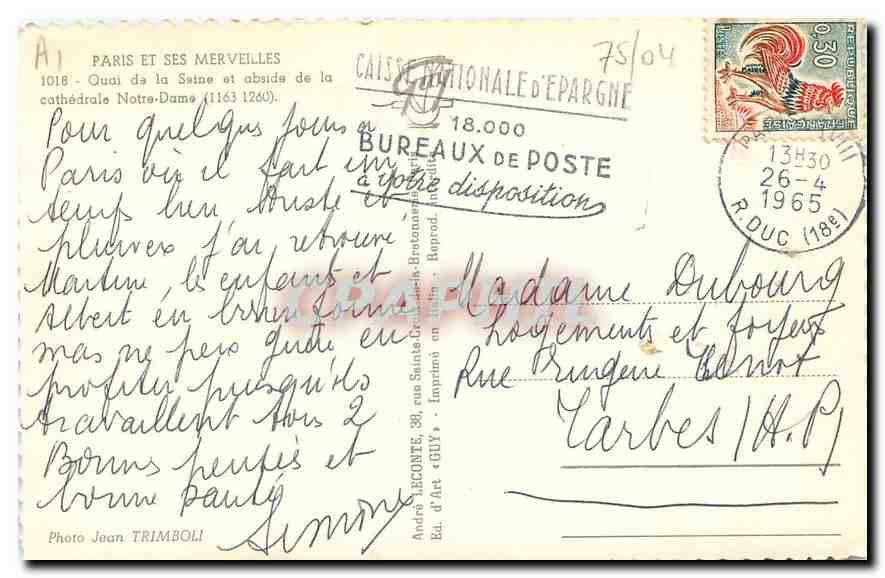 A1
PARIS ET SES MERVEILLES
1018 - Quai de la Seine et abside de la
cathédrale Notre-Dame (1163 1260).
Pour quelques jours a
Paris où il fait un
temps bien triste et
pluvieux j'ai retrouvé
Martine, les enfants et
Albert en bonne forme
mas ne peus guère en
profiter puisqu'ils
travaillent tous 2
Bonnes pensées et
bonne santé
Simone
Photo Jean TRIMBOLI
André LECONTE, 38, rue Sainte-Croix-de-la-Bretonnerie, Paris
Ed. d'Art «GUY» - Imprimé en Italie - Reprod. interdite
Guy
CAISSE NATIONALE D'EPARGNE
18.000
BUREAUX DE POSTE
à votre disposition
75/04
0,30
POSTES
REPUBLIQUE FRANÇAISE
13H30
26-4
1965
R. DUC (18e)
Madame Dubourg
Logements et foyers
Rue Eugène Tenot
Tarbes (H.P)
CPARAMA